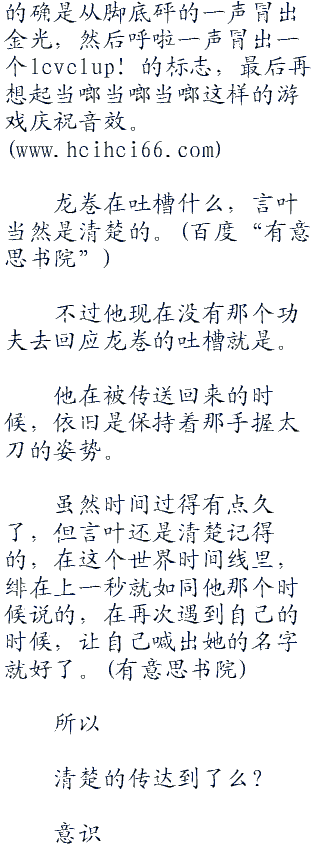 的确是从脚底砰的一声冒出
金光，然后呼啦一声冒出一
个lcvclup！的标志，最后再
想起当啷当啷当啷这样的游
戏庆祝音效。
(www.hcihci66.com)
龙卷在吐槽什么，言叶
当然是清楚的。(百度“有意
思书院”)
不过他现在没有那个功
夫去回应龙卷的吐槽就是。
他在被传送回来的时
候，依旧是保持着那手握太
刀的姿势。
虽然时间过得有点久
了，但言叶还是清楚记得
的，在这个世界时间线里，
绯在上一秒就如同他那个时
候说的，在再次遇到自己的
时候，让自己喊出她的名字
就好了。(有意思书院)
所以
清楚的传达到了么？
意识